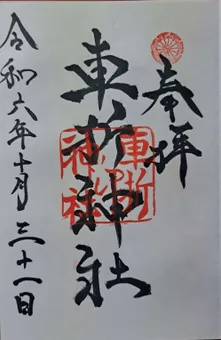 奉拝
車折神社
車折神社
令和六年十月三十一日